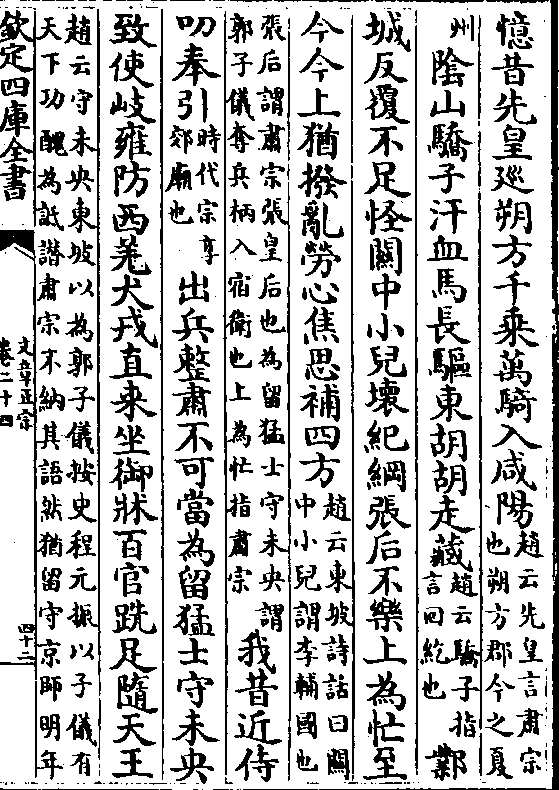 憶昔先皇巡朔方千乗萬騎入咸陽趙云先皇言肅宗也朔方郡今之夏
州陰山驕子汗血馬長驅東胡胡走藏趙云驕子指言回紇也鄴
城反覆不足怪關中小兒壞紀綱張后不樂上為忙至
今今上猶撥亂勞心焦思補四方趙云東坡詩話曰關中小兒謂李輔國也
張后謂肅宗張皇后也為留猛士守未央謂郭子儀奪兵柄入宿衛也上為忙指肅宗我昔近侍
叨奉引時代宗享郊廟也出兵整肅不可當為留猛士守未央
致使岐雍防西羌犬戎直来坐御牀百官跣足隨天王
趙云守未央東坡以為郭子儀按史程元振以子儀有天下功醜為詆譖肅宗不納其語然猶留守京師明年
欽定四庫全書
文章正宗
卷二十四
四十二